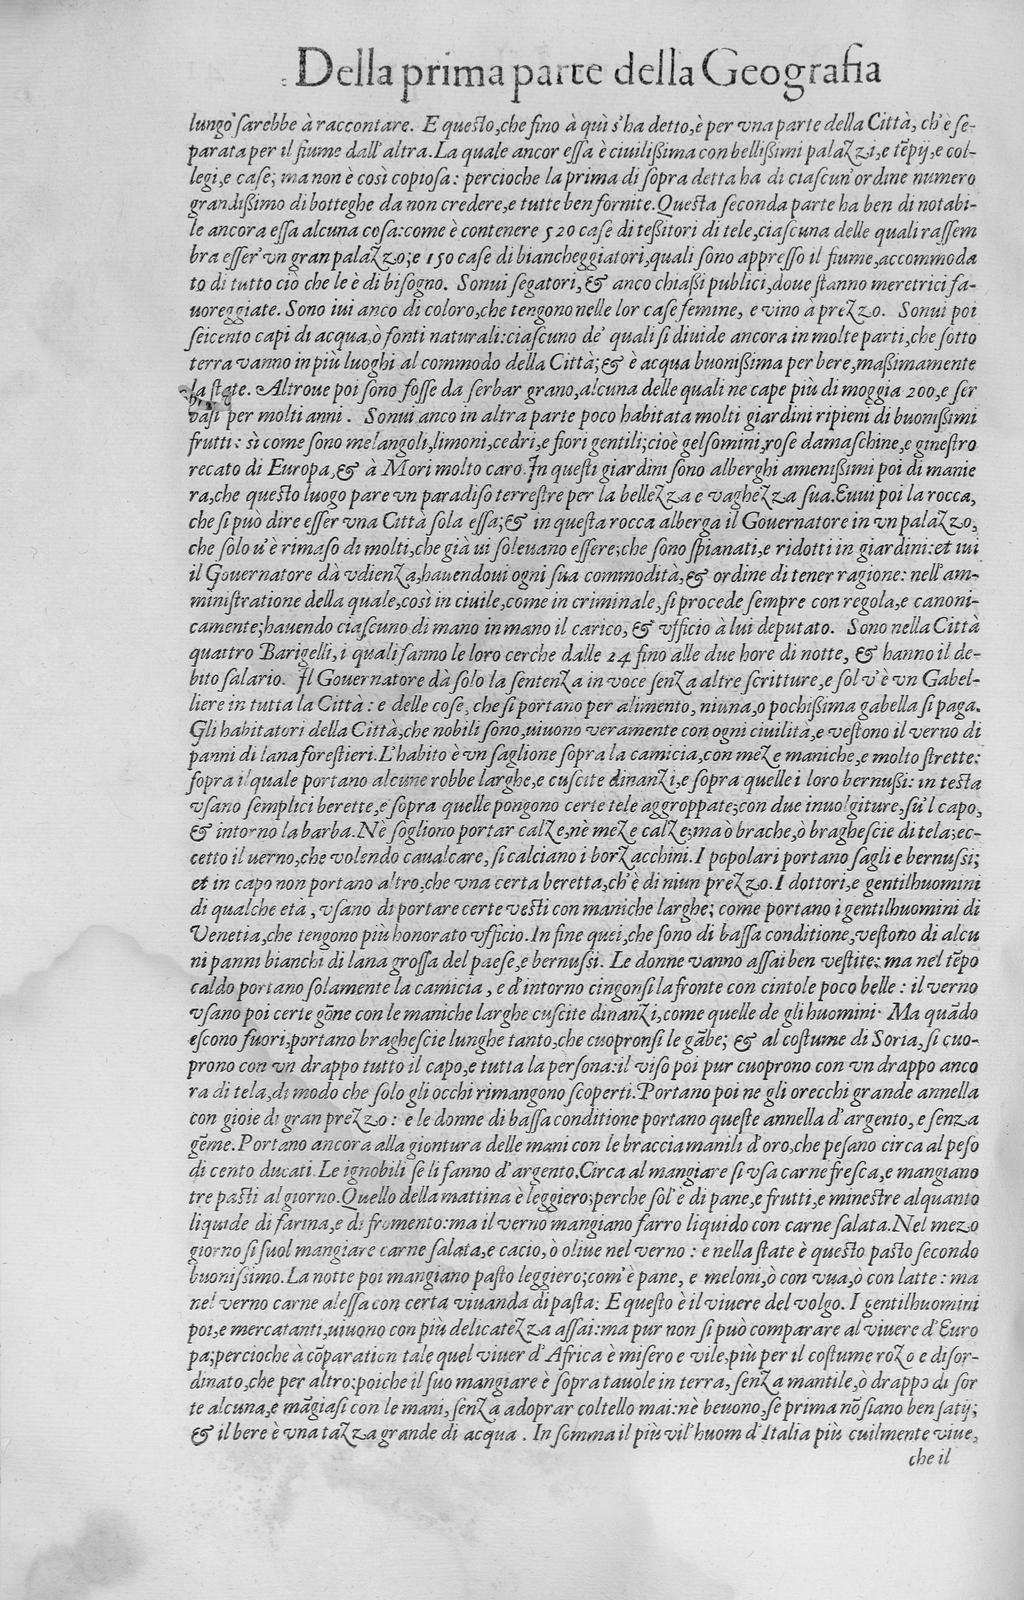 Della prima parte della Geografia
lungo sarebbe à raccontare. E questo, che fino à quì s'ha detto, è per vna parte della Città, ch'è se-
parata per il fiume dall'altra. La quale ancor essa è ciuilißima con bellißimi palazzi, e tẽpij, e col-
legi, e case; ma non è così copiosa: percioche la prima di sopra detta ha di ciascun'ordine numero
grandißimo di botteghe da non credere, e tutte ben fornite. Questa seconda parte ha ben di notabi-
le ancora essa alcuna cosa: come è contenere 520 case di teßitori di tele, ciascuna delle quali rassem
bra esser' vn gran palazzo; e 150 case di biancheggiatori, quali sono appresso il fiume, accommoda
to di tutto ciò che le è di bisogno. Sonui segatori, & anco chiaßi publici, doue stanno meretrici fa-
uoreggiate. Sono iui anco di coloro, che tengono nelle lor case femine, e vino à prezzo. Sonui poi
seicento capi di acqua, ò fonti naturali: ciascuno de' quali si diuide ancora in molte parti, che sotto
terra vanno in più luoghi al commodo della Città; & è acqua buonißima per bere, maßimamente
la state. Altroue poi sono fosse da serbar grano, alcuna delle quali ne cape più di moggia 200, e ser
vasi per molti anni. Sonui anco in altra parte poco habitata molti giardini ripieni di buonißimi
frutti: sì come sono melangoli, limoni, cedri, e fiori gentili; cioè gelsomini, rose damaschine, e ginestro
recato di Europa, & à Mori molto caro. In questi giardini sono alberghi amenißimi poi di manie
ra, che questo luogo pare vn paradiso terrestre per la bellezza e vaghezza sua. Euui poi la rocca,
che si può dire esser vna Città sola essa; & in questa rocca alberga il Gouernatore in vn palazzo,
che solo u'è rimaso di molti, che già ui soleuano essere; che sono spianati, e ridotti in giardini: et iui
il Gouernatore dà vdienza, hauendoui ogni sua commodità, & ordine di tener ragione: nell'am-
ministratione della quale, così in ciuile, come in criminale, si procede sempre con regola, e canoni-
camente; hauendo ciascuno di mano in mano il carico, & vfficio à lui deputato. Sono nella Città
quattro Barigelli, i quali fanno le loro cerche dalle 24 fino alle due hore di notte, & hanno il de-
bito salario. Il Gouernatore dà solo la sentenza in voce senza altre scritture, e sol v'è vn Gabel-
liere in tutta la Città: e delle cose, che si portano per alimento, niuna, o pochißima gabella si paga.
Gli habitatori della Città, che nobili sono, uiuono veramente con ogni ciuilità, e vestono il verno di
panni di lana forestieri. L'habito è vn saglione sopra la camicia, con meze maniche, e molto strette:
sopra il quale portano alcune robbe larghe, e cuscite dinanzi, e sopra quelle i loro bernussi: in testa
vsano semplici berette, e sopra quelle pongono certe tele aggroppate; con due inuolgiture, sù'l capo,
& intorno la barba. Ne sogliono portar calze, nè meze calze; ma ò brache, ò braghescie di tela; ec-
cetto il uerno, che volendo caualcare, si calciano i borzacchini. I popolari portano sagli e bernussi;
et in capo non portano altro, che vna certa beretta, ch'è di niun prezzo. I dottori, e gentilhuomini
di qualche età, vsano di portare certe vesti con maniche larghe; come portano i gentilhuomini di
Venetia, che tengono più honorato vfficio. In fine quei, che sono di bassa conditione, vestono di alcu
ni panni bianchi di lana grossa del paese, e bernussi. Le donne vanno assai ben vestite: ma nel tẽpo
caldo portano solamente la camicia, e d'intorno cingonsi la fronte con cintole poco belle: il verno
vsano poi certe gõne con le maniche larghe cuscite dinanzi, come quelle de gli huomini. Ma quãdo
escono fuori, portano braghescie lunghe tanto, che cuopronsi le gãbe; & al costume di Soria, si cuo-
prono con vn drappo tutto il capo, e tutta la persona: il viso poi pur cuoprono con vn drappo anco
ra di tela, di modo che solo gli occhi rimangono scoperti. Portano poi ne gli orecchi grande annella
con gioie di gran prezzo: e le donne di bassa conditione portano queste annella d'argento, e senza
gẽme. Portano ancora alla giontura delle mani con le braccia manili d'oro, che pesano circa al peso
di cento ducati. Le ignobili se li fanno d'argento. Circa al mangiare si vsa carne fresca, e mangiano
tre pasti al giorno. Quello della mattina è leggiero; perche sol'è di pane, e frutti, e minestre alquanto
liquide di farina, e di fromento: ma il verno mangiano farro liquido con carne salata. Nel mezo
giorno si suol mangiare carne salata, e cacio, ò oliue nel verno: e nella state è questo pasto secondo
buonissimo. La notte poi mangiano pasto leggiero; com'è pane, e meloni, ò con vua, ò con latte: ma
nel verno carne alessa con certa viuanda di pasta. E questo è il viuere del volgo. I gentilhuomini
poi, e mercatanti, uiuono con più delicatezza assai: ma pur non si può comparare al viuere d'Euro
pa; percioche à cõparation tale quel viuer d'Africa è misero e vile, più per il costume rozo e disor-
dinato, che per altro: poiche il suo mangiare è sopra tauole in terra, senza mantile, ò drappo di sor
te alcuna, e mãgiasi con le mani, senza adoprar coltello mai: nè beuono, se prima nõ siano ben satij;
& il bere è vna tazza grande di acqua. In somma il più vil'huom d'Italia più cuilmente viue,
che il